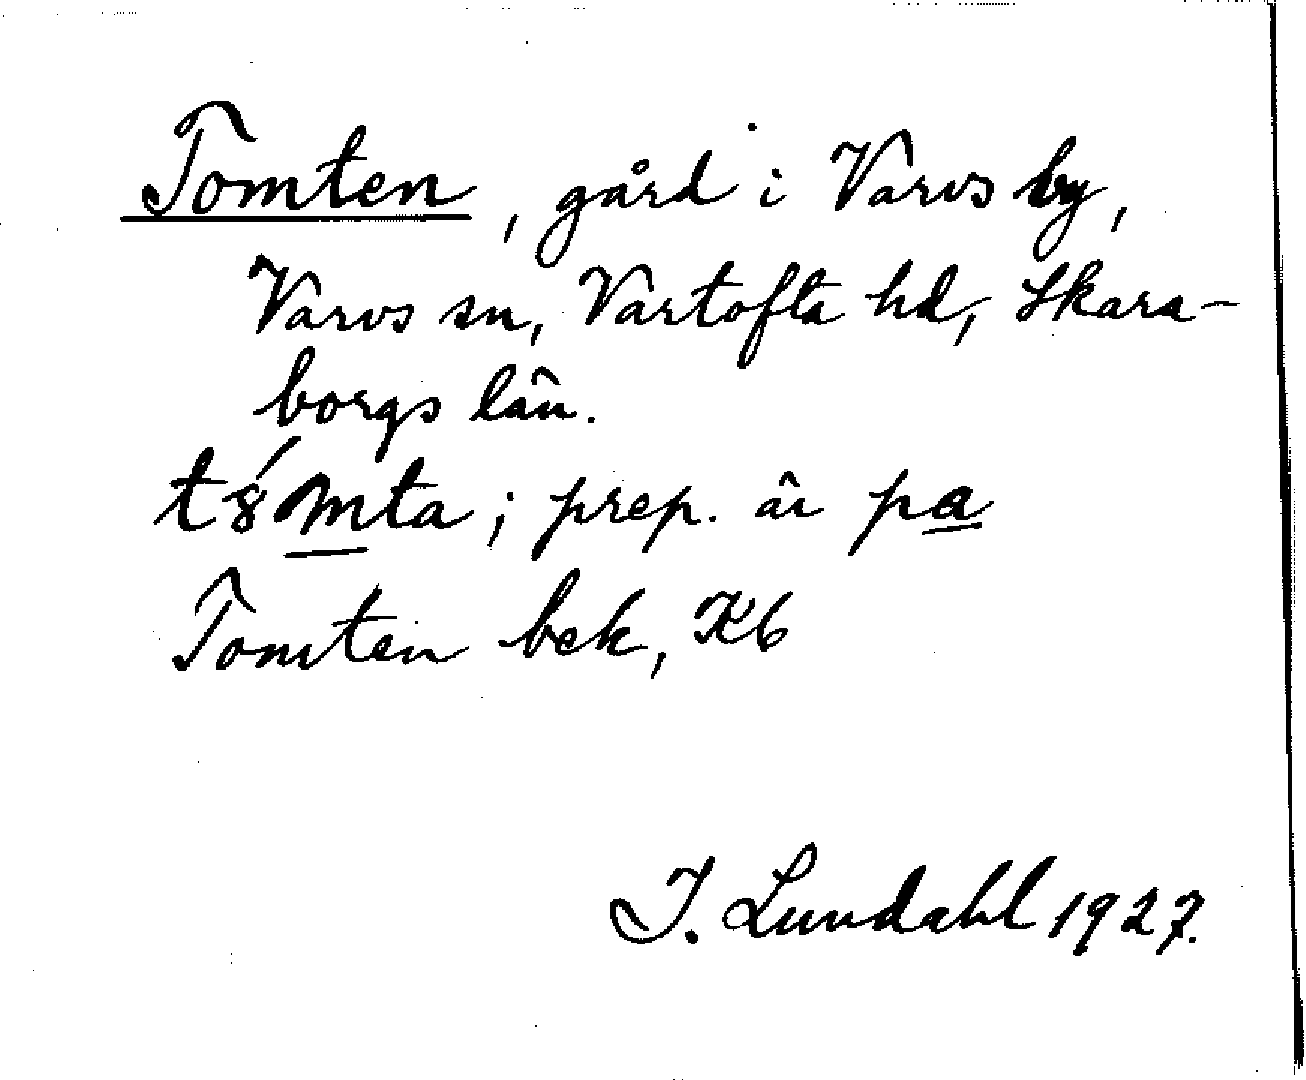 Tomten, gård i Varvs by,
Varvs sn, Vartofta hd, Skara-
borgs län.
t8́mta; prep. är pa
Tomten bek, Kb
I. Lundahl 1927.